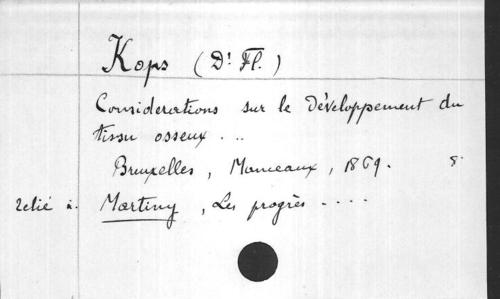 Kops (Dr Fl.)
Considerations sur le Développement du
tissu osseux ...
Bruxelles, Manceaux, 1869. 8.
relié à: Martiny, Les progrès ....